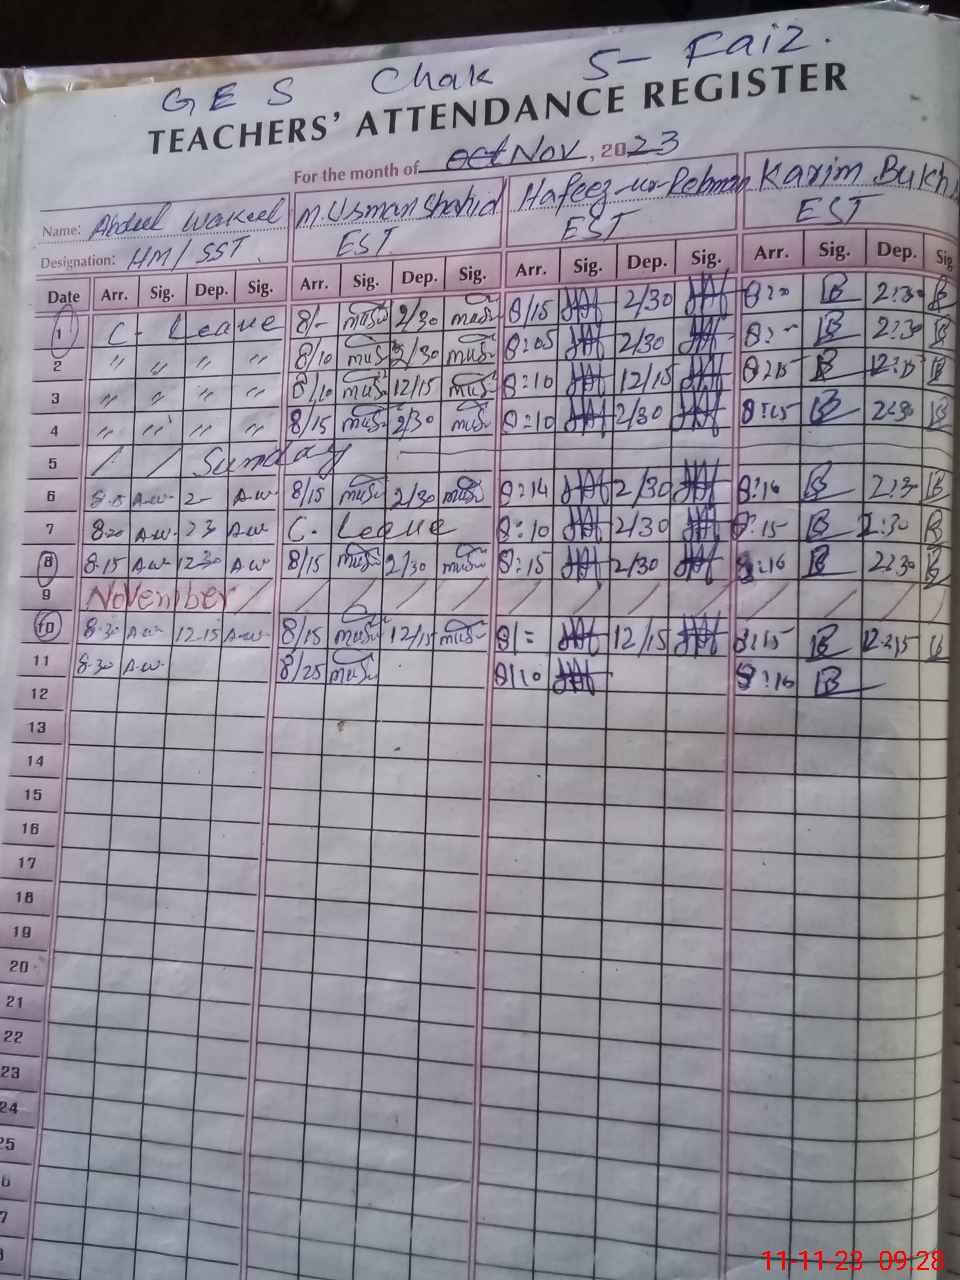 GES Chak 5-Faiz.
TEACHERS' ATTENDANCE REGISTER
For the month of oct Nov, 2023
Name: Abdul Wakeel M.Usman Shahid Hafeez-ur-Rehman Karim Bukh
Designation: HM/SST. EST EST EST
Date Arr. Sig. Dep. Sig. Arr. Sig. Dep. Sig. Arr. Sig. Dep. Sig. Arr. Sig. Dep. Sig
1 C- Leave 8/- 2/30 8/15 2/30 2:30
2 " " " " 8/10 2/30 8:05 2/30 8:- 2:30
3 " " " " 8/10 12/15 8:10 12/15 8:15 12:15
4 " " " " 8/15 2/30 8:10 2/30 8:15 2:30
5 / / Sunday
6 A.w. 2- A.w. 8/15 2/30 8:14 2/30 8:16 B 2:3 B
7 8-20 A.w. 23 A.w C. Leave 8:10 2/30 8:15 B 2:30 B
8 8-15 A.w 12-30 A.w 8/15 2/30 8:15 2/30 8:16 B 2:30 B
9 November / / / / / / / / / / / / /
10 8-30 A.w 12-15 A.w. 8/15 12/15 8/= 12/15 8:15 B 12:15 B
11 8-30 A.w. 8/25 8/10 8:16 B
12
13
14
15
16
17
18
19
20
21
22
23
24
25
6
7
8
11-11-23 09:28